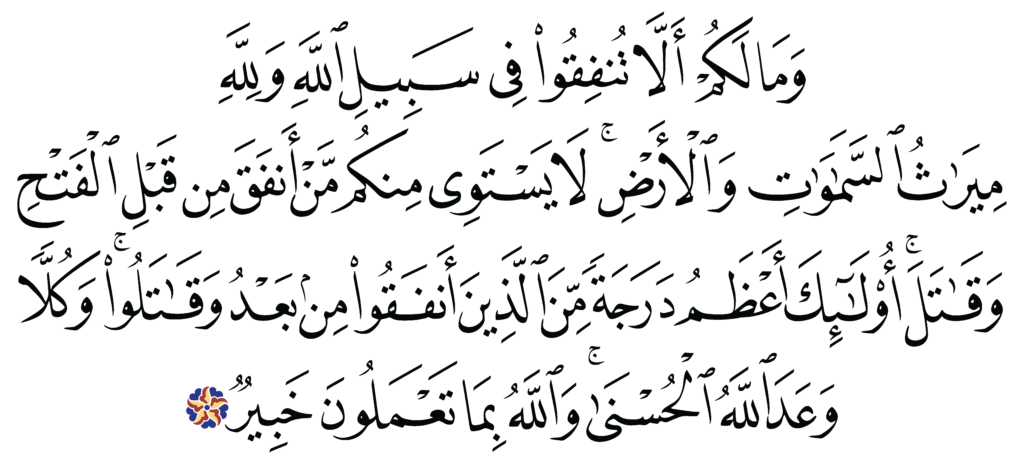 وَمَا لَكُمۡ أَلَّا تُنفِقُواْ فِي سَبِيلِ ٱللَّهِ وَلِلَّهِ
مِيرَٰثُ ٱلسَّمَٰوَٰتِ وَٱلۡأَرۡضِۚ لَا يَسۡتَوِي مِنكُم مَّنۡ أَنفَقَ مِن قَبۡلِ ٱلۡفَتۡحِ
وَقَٰتَلَۚ أُوْلَٰٓئِكَ أَعۡظَمُ دَرَجَةٗ مِّنَ ٱلَّذِينَ أَنفَقُواْ مِنۢ بَعۡدُ وَقَٰتَلُواْۚ وَكُلّٗا
وَعَدَ ٱللَّهُ ٱلۡحُسۡنَىٰۚ وَٱللَّهُ بِمَا تَعۡمَلُونَ خَبِيرٞ